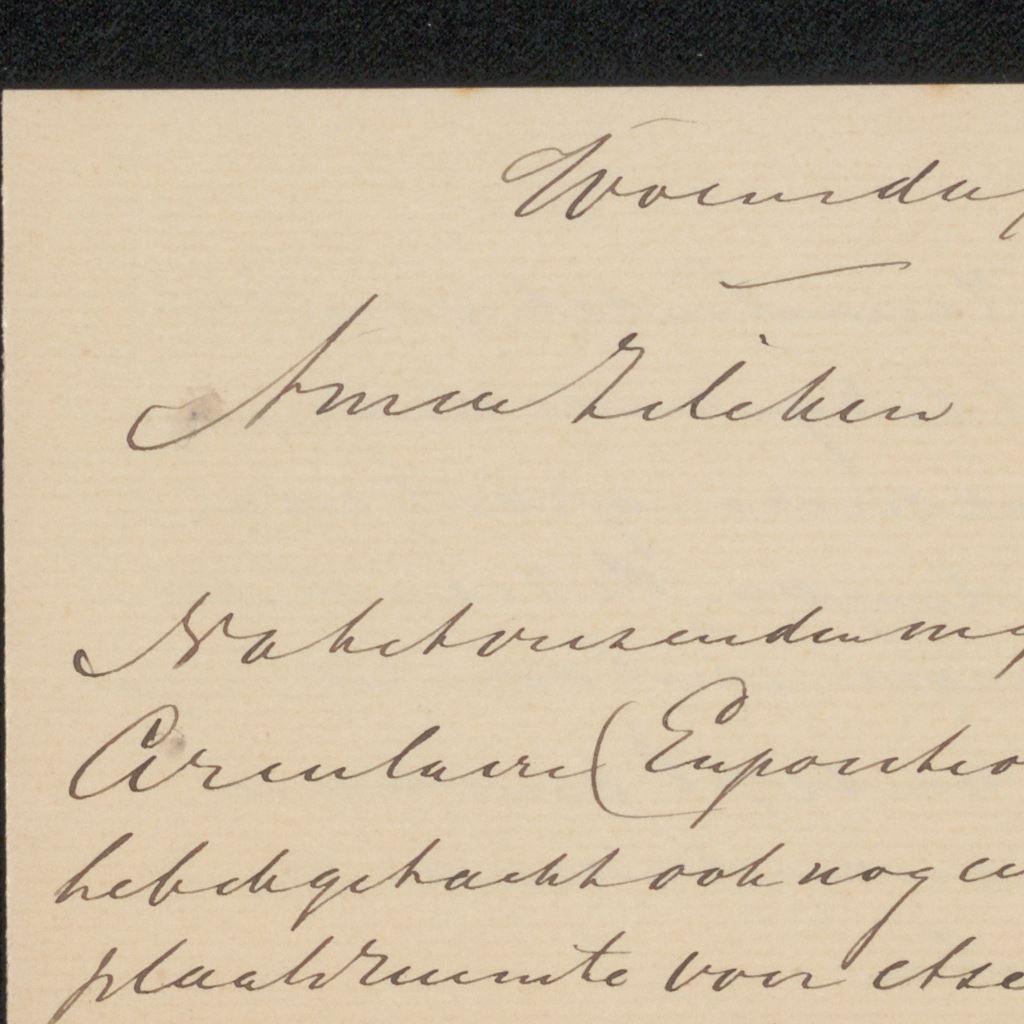 Woensdag
Amice Zilcken
Na het verzenden mij
Circulaire (Expositio
heb ik getracht ook nog ee
plaatsruimte voor etse